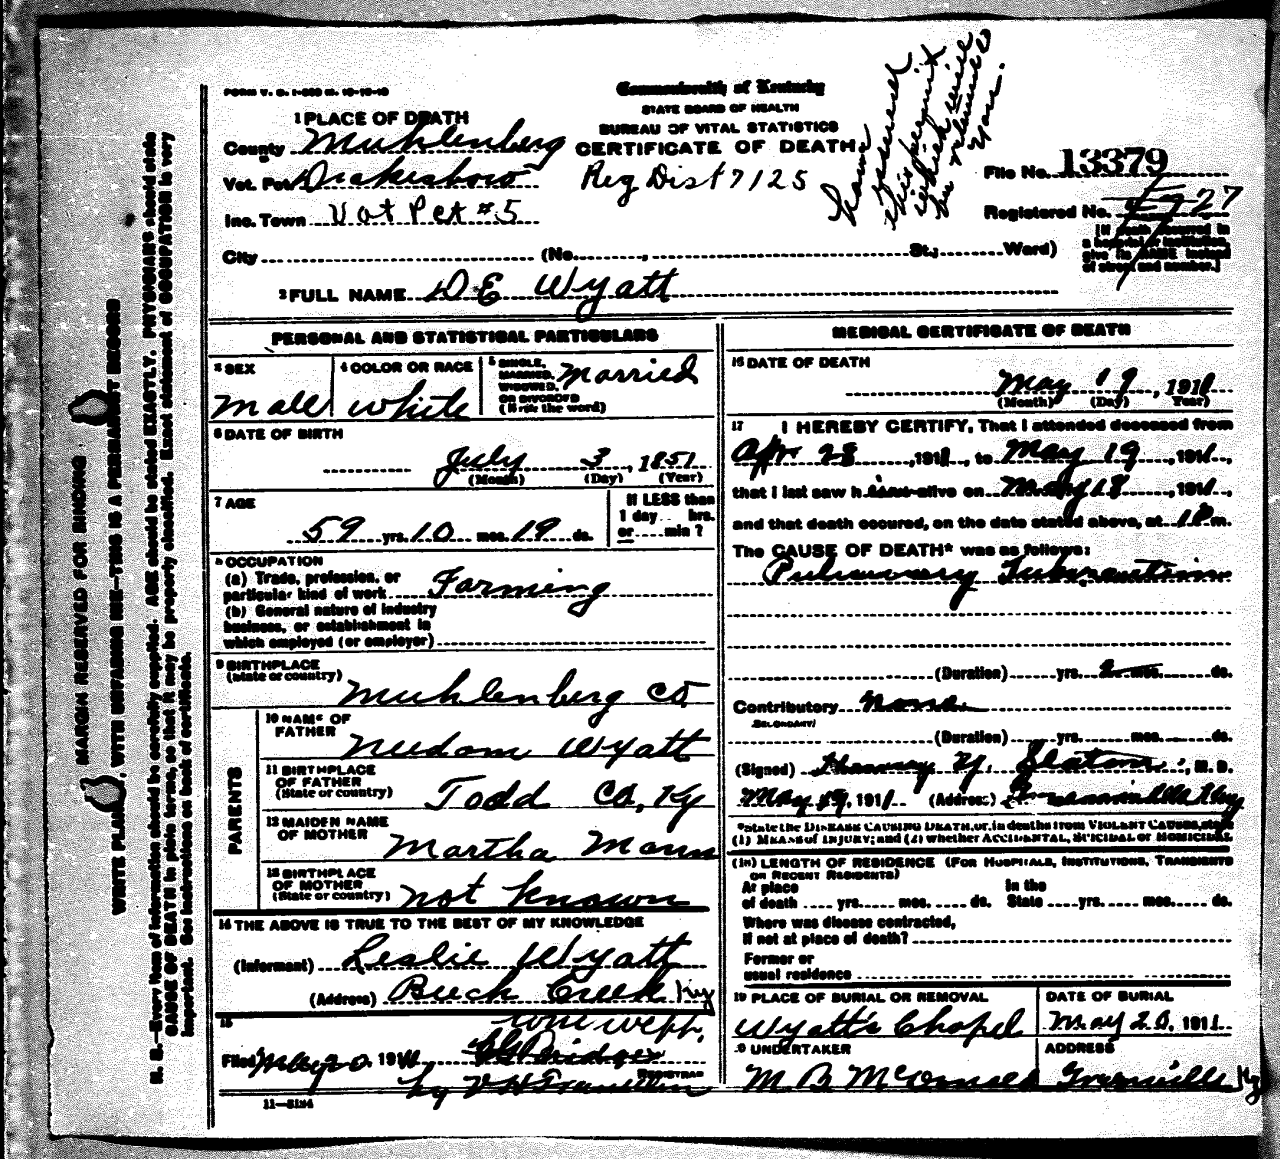 FORM V. S. 1-
Commonwealth of Kentucky
STATE BOARD OF HEALTH
BUREAU OF VITAL STATISTICS
CERTIFICATE OF DEATH
I have
issued
this permit
which will
be returned
you.
1 PLACE OF DEATH
County Muhlenberg
Vot. Pct Drakesboro
Reg Dist 7125
File No. 13379
Inc. Town Vot Pct #5
Registered No. 27
[If death occurred in
a hospital or institution,
give its NAME instead
of street and number.]
City (No. , St.; Ward)
2 FULL NAME D E Wyatt
PERSONAL AND STATISTICAL PARTICULARS
3 SEX
Male
4 COLOR OR RACE
White
5 SINGLE,
MARRIED,
WIDOWED,
OR DIVORCED
(Write the word)
Married
6 DATE OF BIRTH
July 3, 1851
(Month) (Day) (Year)
7 AGE
59 yrs. 10 mos. 19 ds.
If LESS than
1 day hrs.
or min?
8 OCCUPATION
(a) Trade, profession, or
particular kind of work Farming
(b) General nature of industry
business, or establishment in
which employed (or employer)
9 BIRTHPLACE
(State or country)
Muhlenberg Co
PARENTS
10 NAME OF
FATHER
Wyatt
11 BIRTHPLACE
OF FATHER
(State or country)
Todd Co, Ky
12 MAIDEN NAME
OF MOTHER
Martha Mann
13 BIRTHPLACE
OF MOTHER
(State or country)
not known
14 THE ABOVE IS TRUE TO THE BEST OF MY KNOWLEDGE
(Informant) Leslie Wyatt
(Address) Beech Creek Ky
15
Filed May 20 1911
REGISTRAR
11-
MEDICAL CERTIFICATE OF DEATH
16 DATE OF DEATH
May 19, 1911
(Month) (Day) (Year)
17 I HEREBY CERTIFY, That I attended deceased from
Apr 28, 1911, to May 19, 1911,
that I last saw him alive on May 18, 1911,
and that death occured, on the date stated above, at m.
The CAUSE OF DEATH* was as follows:
Pulmonary
(Duration) yrs. mos. ds.
Contributory None
SECONDARY
(Duration) yrs. mos. ds.
(Signed) Henry Y. Slaton, M. D.
May 19, 1911 (Address) Ky
*State the DISEASE CAUSING DEATH, or, in deaths from VIOLENT CAUSES, state
(1) MEANS OF INJURY; and (2) whether ACCIDENTAL, SUICIDAL or HOMICIDAL
(18) LENGTH OF RESIDENCE (FOR HOSPITALS, INSTITUTIONS, TRANSIENTS
OR RECENT RESIDENTS)
At place
of death yrs. mos. ds.
In the
State yrs. mos. ds.
Where was disease contracted,
if not at place of death?
Former or
usual residence
19 PLACE OF BURIAL OR REMOVAL
Wyatt's Chapel
DATE OF BURIAL
May 20, 1911
UNDERTAKER
M B
ADDRESS
Greenville Ky
MARGIN RESERVED FOR BINDING
WRITE PLAINLY, WITH UNFADING INK—THIS IS A PERMANENT RECORD
N. B.—Every item of information should be carefully supplied. AGE should be stated EXACTLY. PHYSICIANS should state
CAUSE OF DEATH in plain terms, so that it may be properly classified. Exact statement of OCCUPATION is very
important. See instructions on back of certificate.